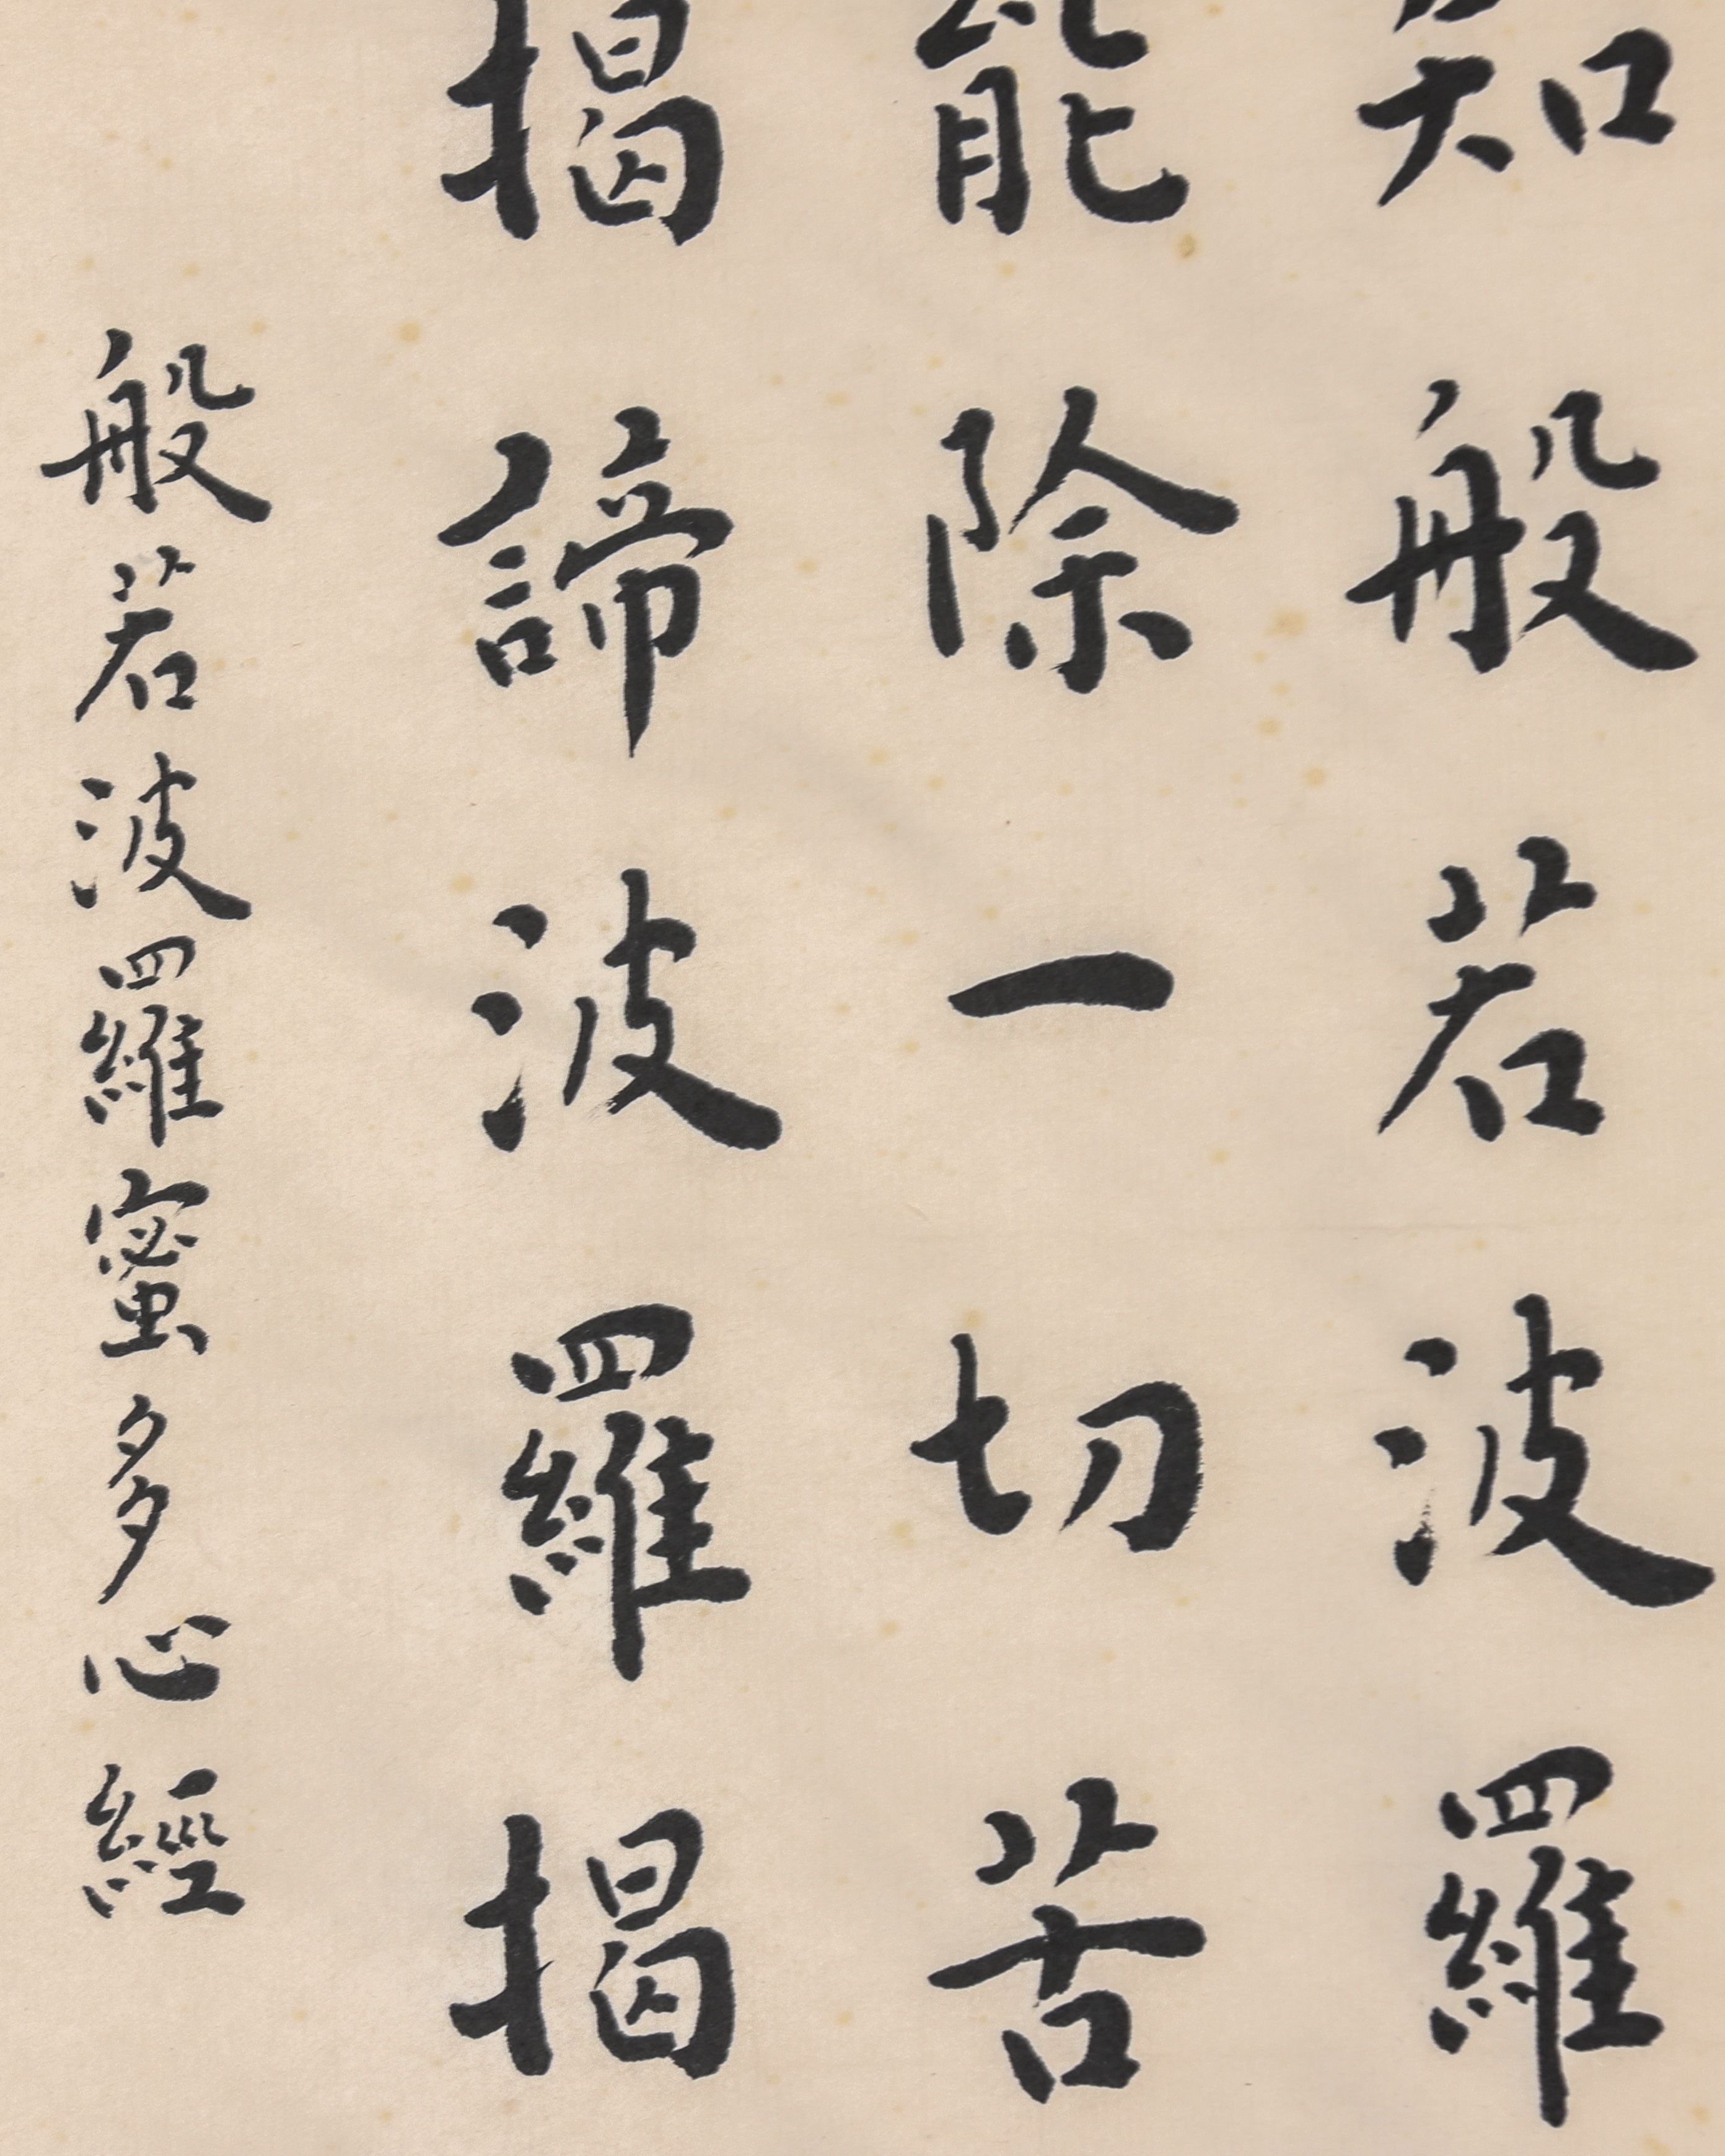 知般若波羅
能除一切苦
揭諦波羅揭
般若波羅蜜多心經